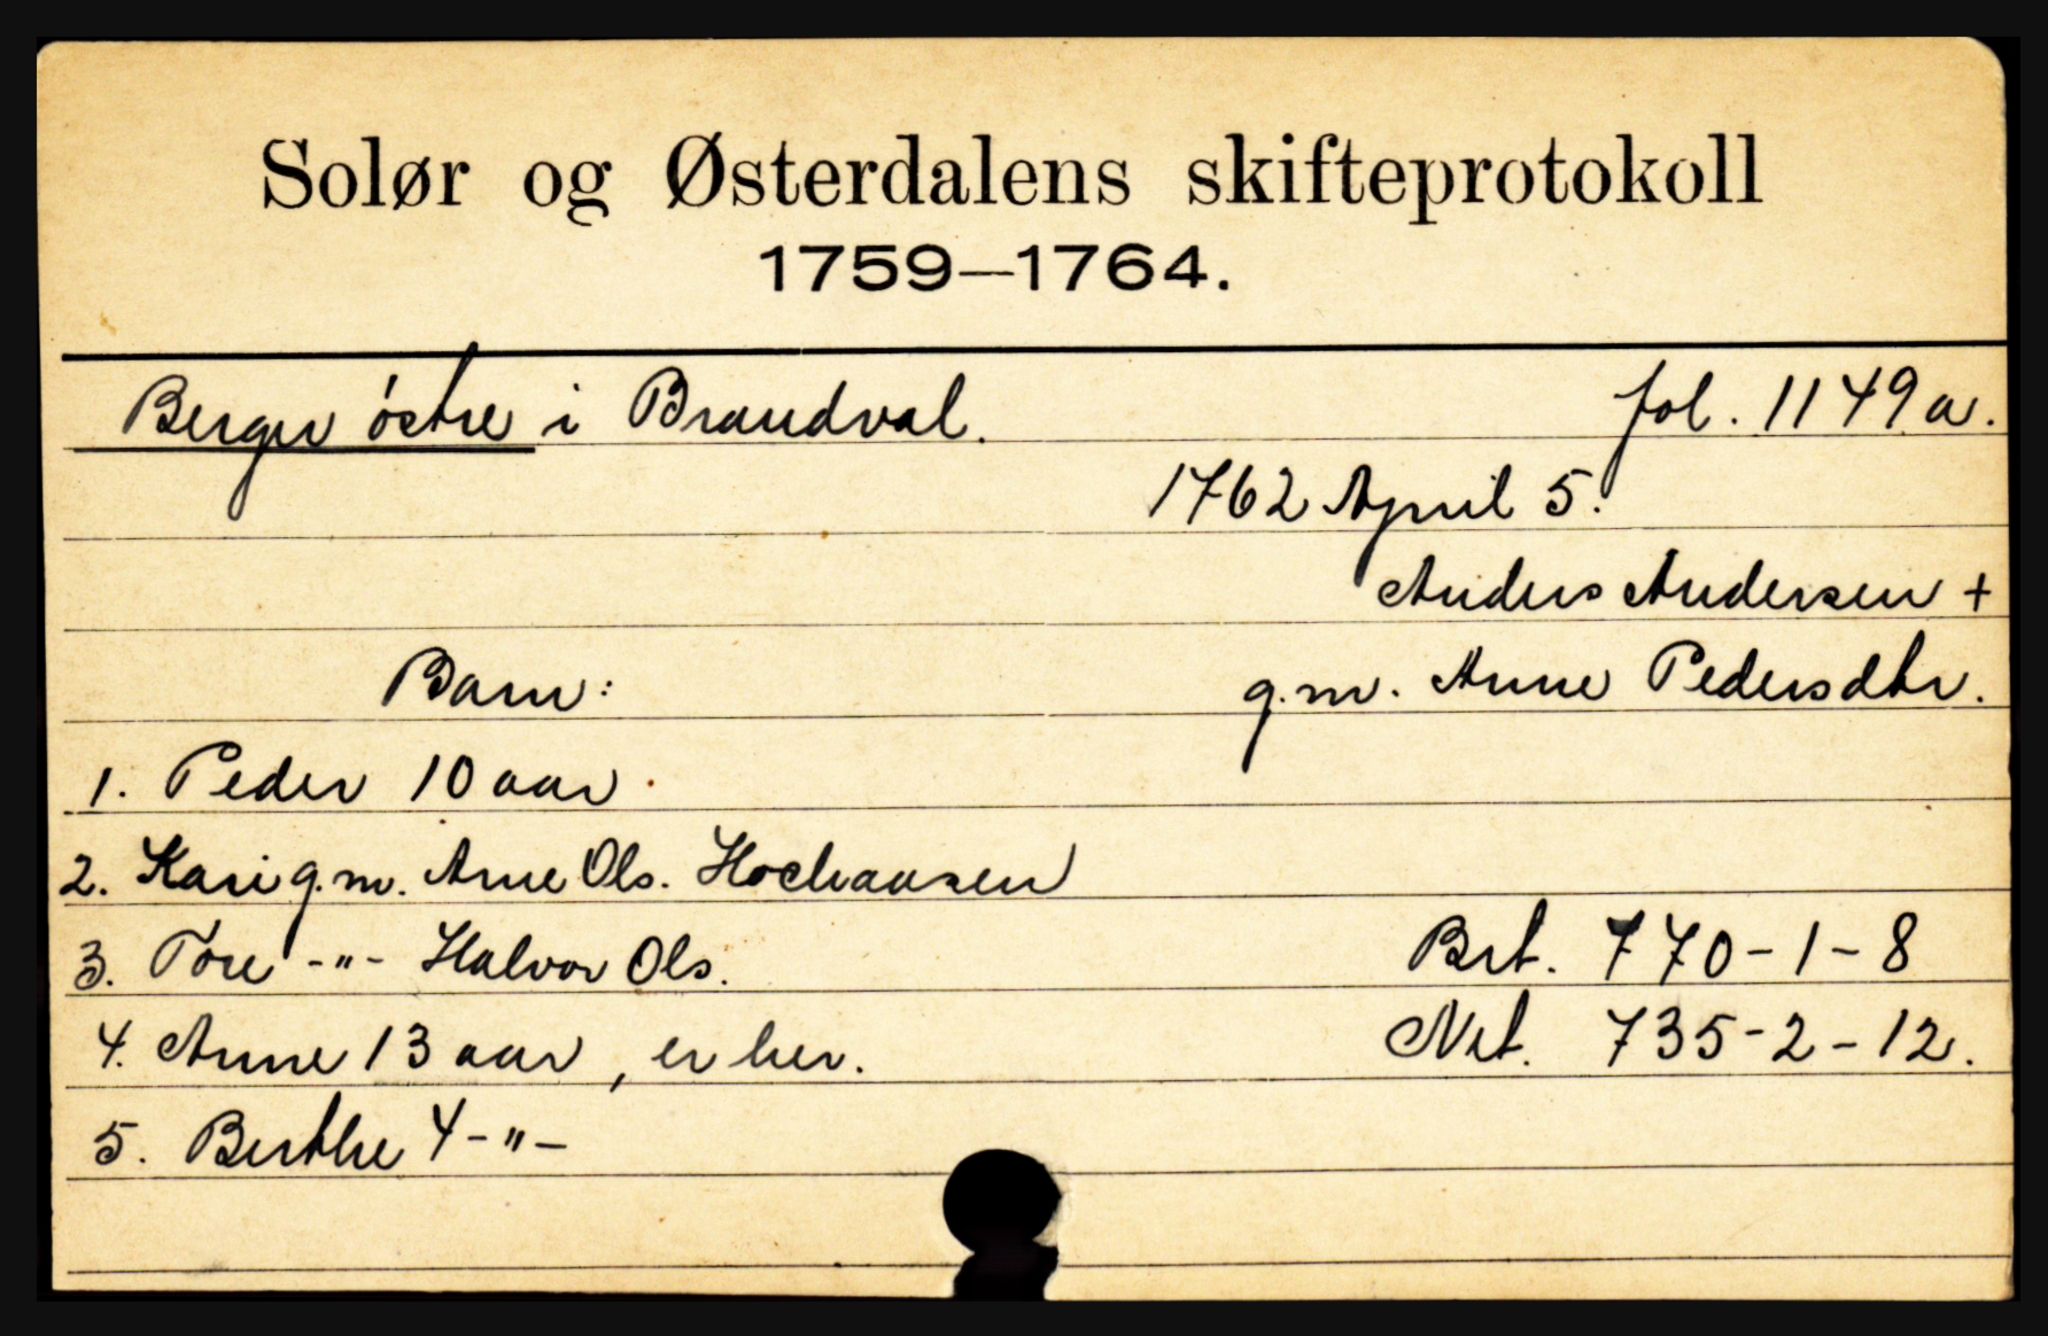 Solør og Østerdalens skifteprotokoll
1759—1764.
Berger östre i Brandval. fol. 1149 a.
1762 April 5.
Anders Andersen +
Barn: g.m. Anne Pedersdtr.
1. Peder 10 aar.
2. Kari g.m. Arne Ols. Hochaasen
3. Tore -"- Halvor Ols. Brt. 770-1-8
4. Anne 13 aar, er her. Net. 735-2-12.
5. Berthe 4 -"-